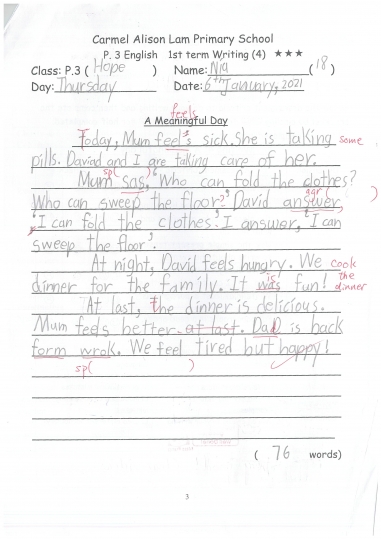 Carmel Alison Lam Primary School
P. 3 English 1st term Writing (4) ★★★
Class: P.3 ( Hope ) Name: Nia ( 18 )
Day: Thursday Date: 6th January, 2021
A Meaningful Day
feels
Today, Mum feel's sick. She is taking some
pills. Daviad and I are talking care of her.
sp( )
Mum sas, "Who can fold the clothes?
Who can sweep the floor?" David answer,
"I can fold the clothes. I answer, "I can
sweep the floor".
At night, David feels hungry. We cook
the
dinner for the family. It was fun! dinner
is
At last, the dinner is delicious.
Mum feels better at last. Dad is back
form wrok. We feel tired but happy!
sp( )
( 76 words)
3